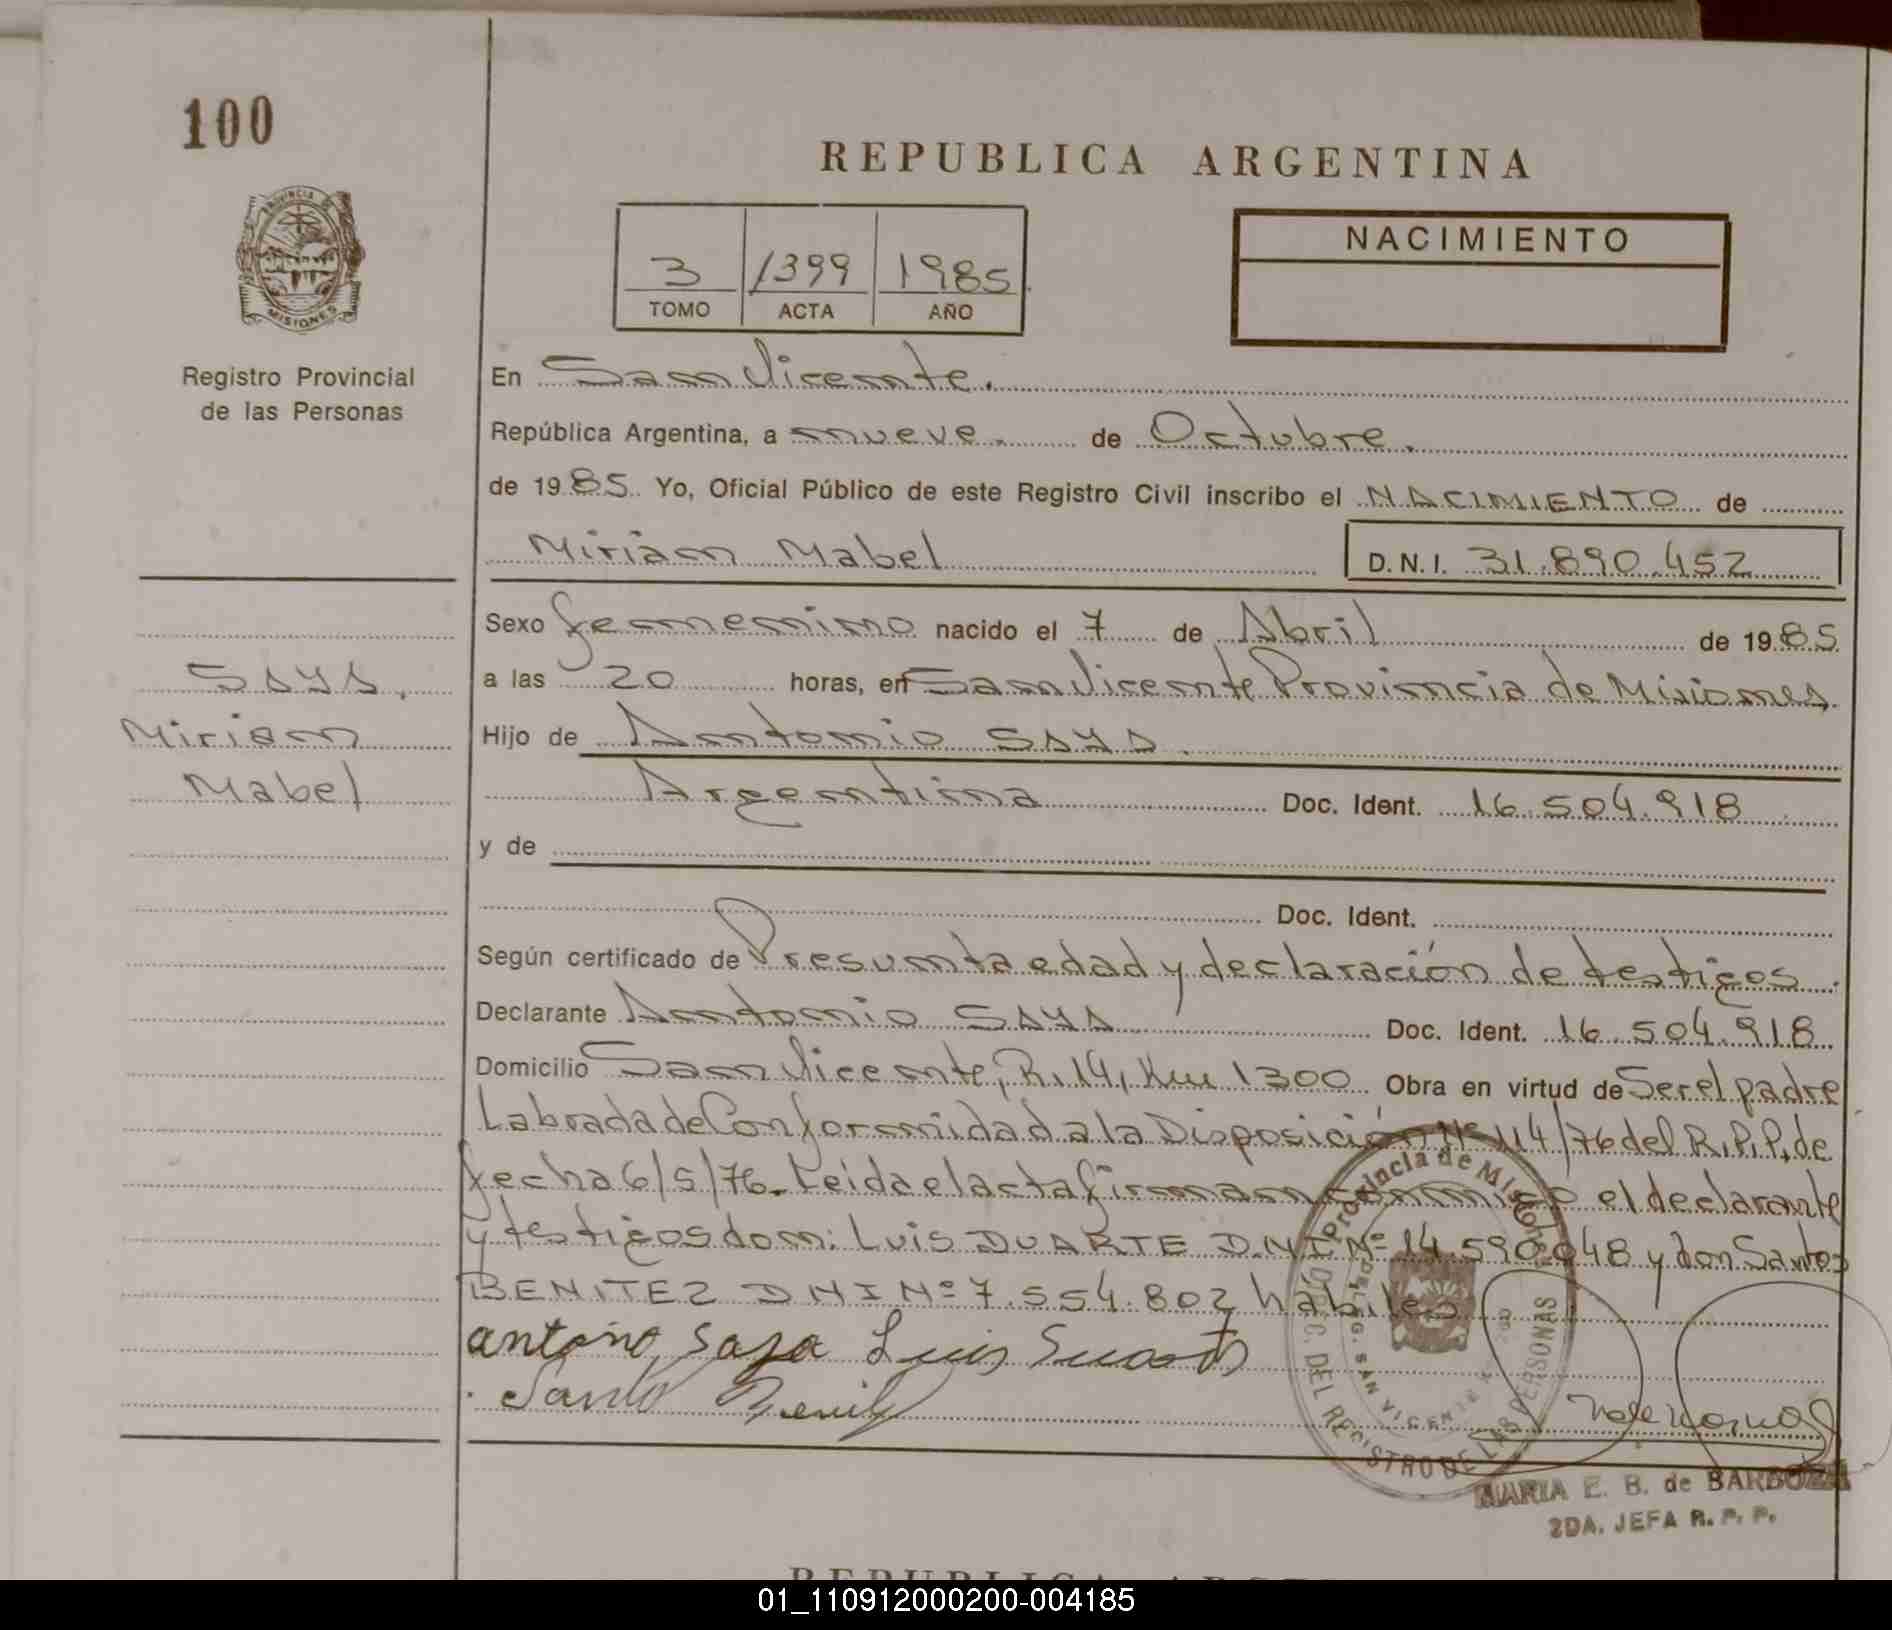 100
REPUBLICA ARGENTINA
PROVINCIA DE
MISIONES
3 1399 1985
TOMO ACTA AÑO
NACIMIENTO
Registro Provincial
de las Personas
En San Vicente.
República Argentina, a nueve. de Octubre.
de 1985. Yo, Oficial Público de este Registro Civil inscribo el NACIMIENTO de
Miriam Mabel D.N.I. 31.890.452
Sexo femenino nacido el 7 de Abril de 1985
SAYA.
a las 20 horas, en San Vicente Provincia de Misiones.
Miriam
Hijo de Antonio SAYA.
Mabel
Argentina Doc. Ident. 16.504.918
y de
Doc. Ident.
Según certificado de Presunta edad y declaración de testigos.
Declarante Antonio SAYA Doc. Ident. 16.504.918
Domicilio San Vicente, R. 14, Km 1300 Obra en virtud de Ser el padre
Labrada de Conformidad a la Disposición Nº 114/76 del R.P.P. de
fecha 6/5/76. Leida el acta firman conmigo el declarante
y testigos don: Luis DUARTE D.N.I Nº 14.590.048 y don Santos
BENITEZ DNI Nº 7.554.802 hábiles
antonio saya Luis
Provincia de Misiones
DEL REGISTRO DE LAS PERSONAS
SAN VICENTE
MARIA E. B. de BARBOZA
2DA. JEFA R. P. P.
01_110912000200-004185